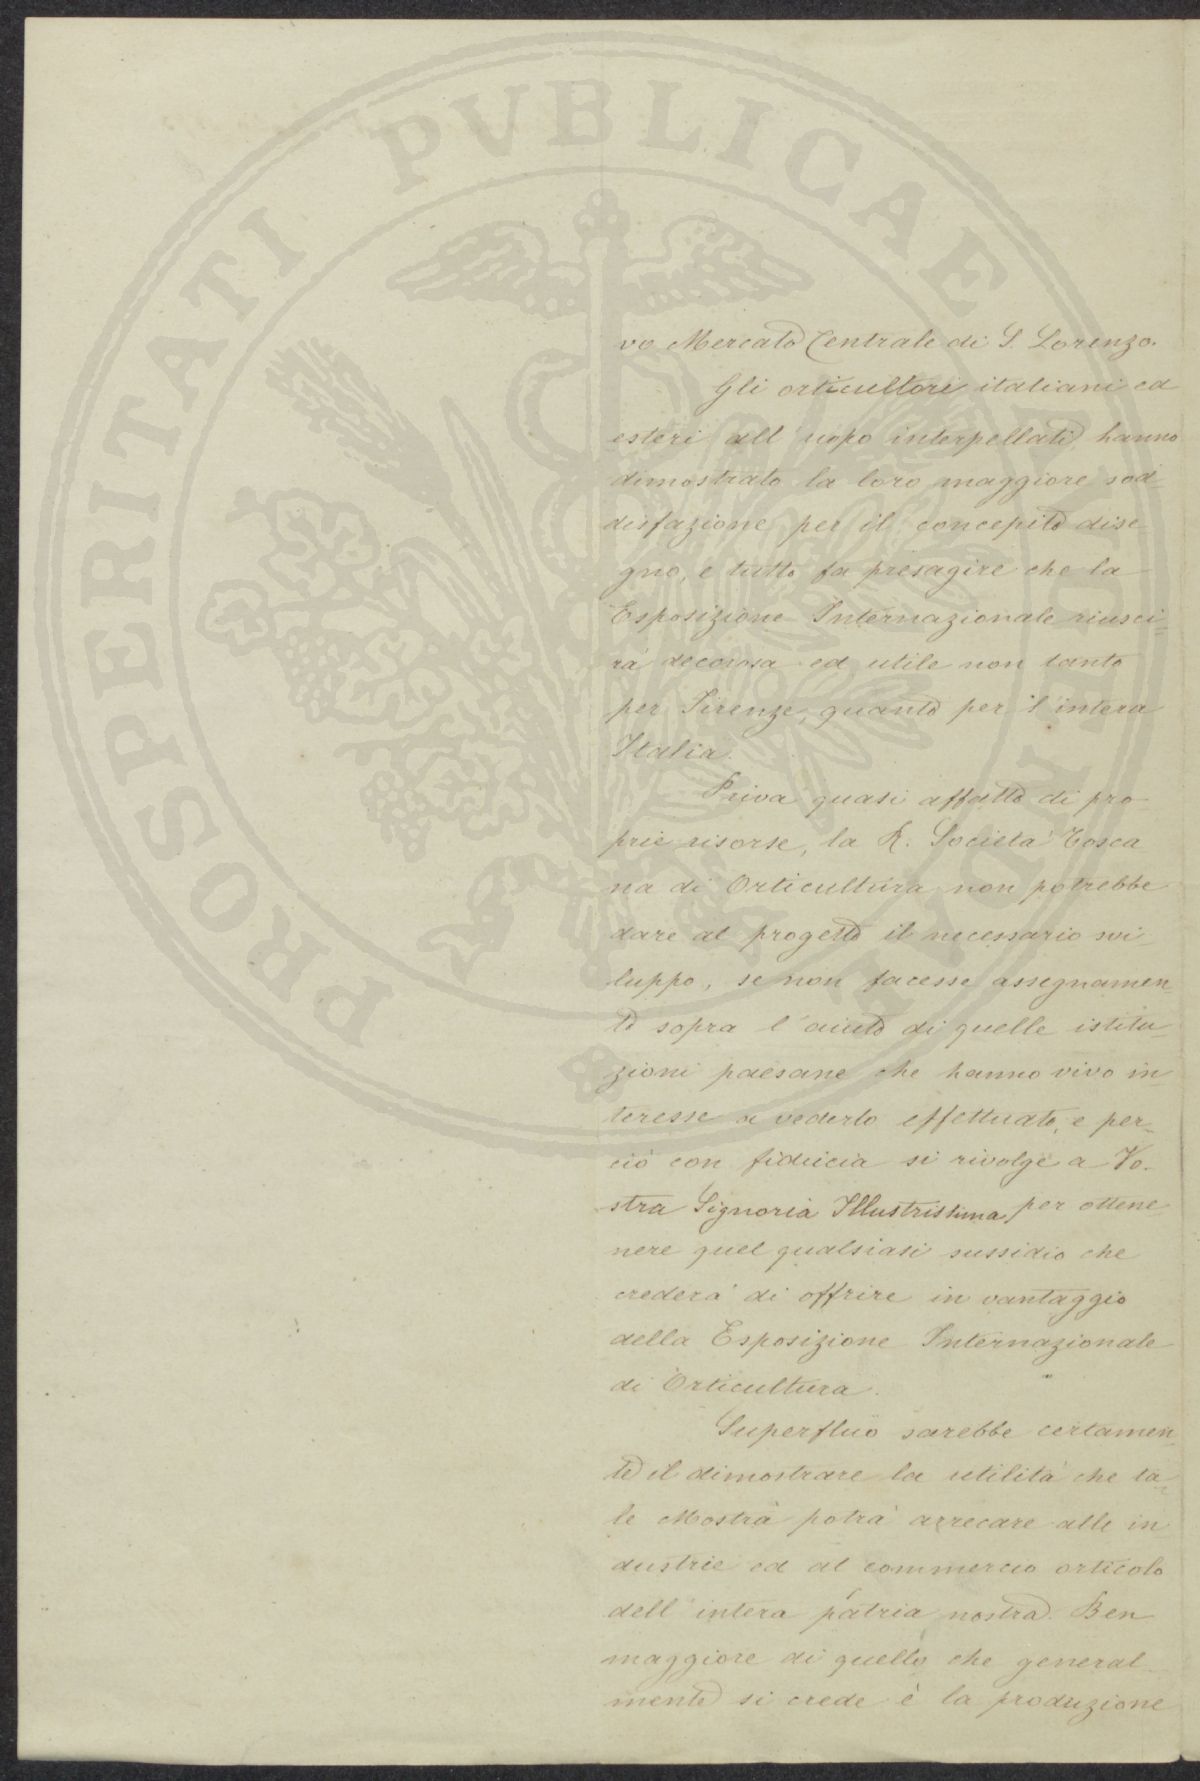 PROSPERITATI PVBLICAE
vo Mercato Centrale di S. Lorenzo.
Gli orticultori italiani ed
esteri all'uopo interpellati, hanno
dimostrato la loro maggiore sod-
disfazione per il concepito dise
gno, e tutto fa presagire che la
Esposizione Internazionale riusci-
rà decorosa ed utile non tanto
per Firenze, quanto per l'intera
Italia.
Priva quasi affatto di pro-
prie risorse, la R. Società Tosca
na di Orticultura non potrebbe
dare al progetto il necessario svi-
luppo, se non facesse assegnamen-
to sopra l'aiuto di quelle istitu-
zioni paesane che hanno vivo in
teresse a vederlo effettuato, e per-
ciò con fiducia si rivolge a Vo-
stra Signoria Illustrissima per ottene-
nere quel qualsiasi sussidio che
crederà di offrire in vantaggio
della Esposizione Internazionale
di Orticultura.
Superfluo sarebbe certamen-
te il dimostrare la utilità che ta-
le Mostra potrà arrecare alle in
dustrie ed al commercio orticolo
dell'intera patria nostra. Ben
maggiore di quello che general-
mente si crede è la produzione